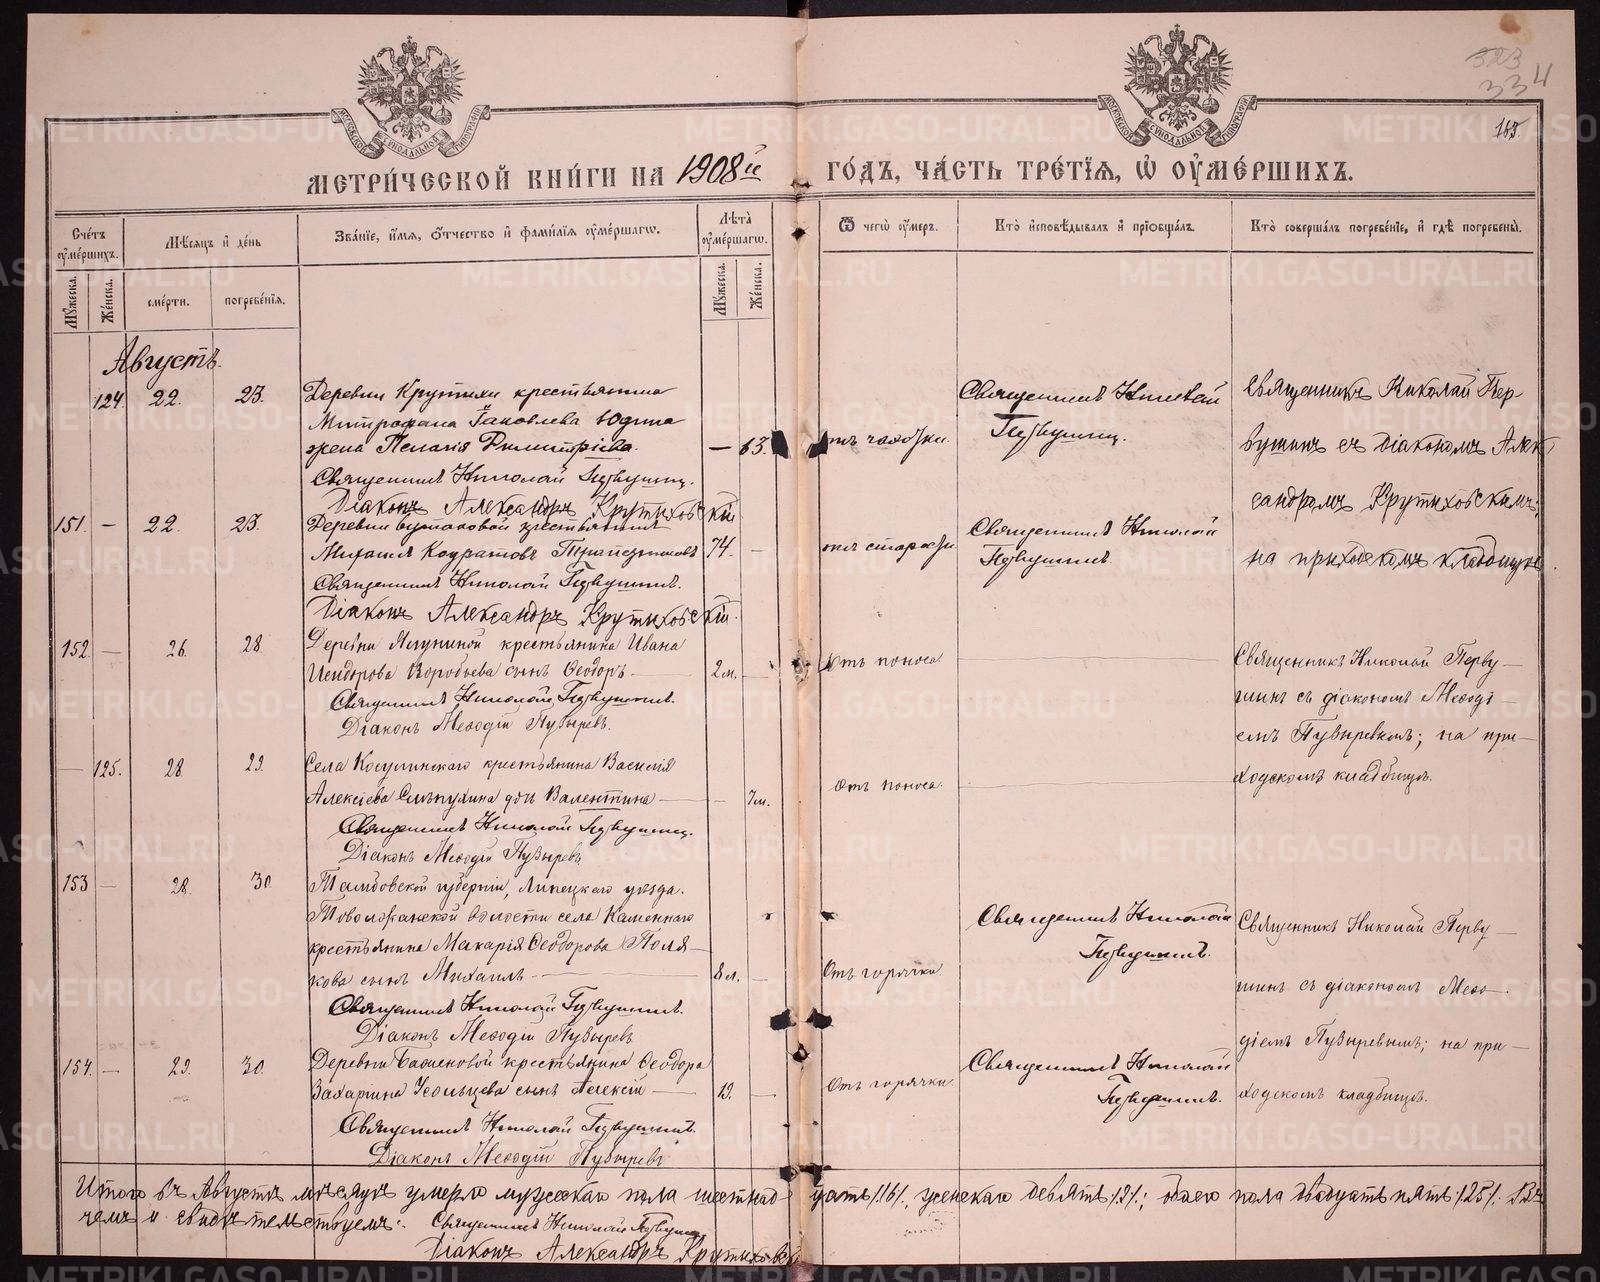 323
334
165.
МОСКОВСКОЙ СѴНОДАЛЬНОЙ ТИПОГРАФІИ
МОСКОВСКОЙ СѴНОДАЛЬНОЙ ТИПОГРАФІИ
МЕТРИ́ЧЕСКОЙ КНИ́ГИ НА 1908й ГО́ДЪ, ЧА́СТЬ ТРЕ́ТІЯ, Ѡ ОУ҆МЕ́РШИХЪ.
Сче́тъ оу҆ме́ршихъ.
Мꙋжеска.
Же́нска.
Мѣсяцъ и҆ де́нь
сме́рти.
погребе́нїѧ.
Зва́нїе, и҆́мѧ, ѻ҆́тчество и҆ фамилїѧ оу҆ме́ршагѡ.
Лѣ́та оу҆ме́ршагѡ.
Мꙋжеска.
Же́нска.
Ѿ чегѡ̀ оу҆́меръ.
Кто̀ и҆сповѣ́дывалъ и҆ прїѡбща́лъ.
Кто̀ соверша́лъ погребе́нїе, и҆ гдѣ̀ погребены̀.
Августъ.
124. 22. 23. Деревни Крутихи крестьянина
Митрофана Іаковлева Юдина
жена Пелагія Димитріева. — 63. отъ чахотки.
Священникъ Николай Первушин.
Діаконъ Александръ Крутиховскій
Священникъ Николай
Первушин.
Священникъ Николай Пер-
вушинъ съ діакономъ Алек
сандромъ Крутиховскимъ;
на приходскомъ кладбищѣ.
151. — 22. 23. Деревни крестьянинъ
Михаилъ Кодратовъ Трапезниковъ 74. — отъ старости
Священникъ Николай Первушинъ.
Діаконъ Александръ Крутиховскій.
Священникъ Николай
Первушинъ.
152. — 26. 28. Деревни Ялуниной крестьянина Ивана
Исидорова Воробьева сынъ Ѳеодоръ — 2м. — Отъ поноса.
Священникъ Николай Первушинъ.
Діаконъ Меѳодій Пузыревъ.
Священникъ Николай Перву-
шинъ съ діакономъ Меѳоді-
емъ Пузыревымъ; на при-
ходскомъ кладбищѣ.
— 125. 28. 29. Села Косулинскаго крестьянина Василія
Алексіева Слѣпухина дочь Валентина — — 7м. Отъ поноса.
Священникъ Николай Первушин.
Діаконъ Меѳодій Пузыревъ
153 — 28. 30. Тамбовской губерніи, Липецкаго уѣзда.
Товолжанской волости села Каменнаго
крестьянина Макарія Ѳеодорова Поля-
кова сынъ Михаилъ — 8л. — Отъ горячки.
Священникъ Николай Первушинъ.
Діаконъ Меѳодій Пузыревъ
Священникъ Николай
Первушинъ.
Священникъ Николай Перву-
шинъ съ діакономъ Меѳо-
діемъ Пузыревымъ; на при-
ходскомъ кладбищѣ.
154. — 29. 30. Деревни Баженовой крестьянина Ѳеодора
Захарина Усольцева сынъ Алексій — 19. — Отъ горячки.
Священникъ Николай Первушинъ.
Діаконъ Меѳодій Пузыревъ
Священникъ Николай
Первушинъ.
Итого въ Августѣ мѣсяцѣ умерло мужескаго пола шестнад-цать /16/, женскаго девять /9/; обоего пола двадцать пять /25/. Въ
чемъ и свидѣтельствуемъ: Священникъ Николай Первушин
Діаконъ Александръ Крутиховск
METRIKI.GASO-URAL.RU